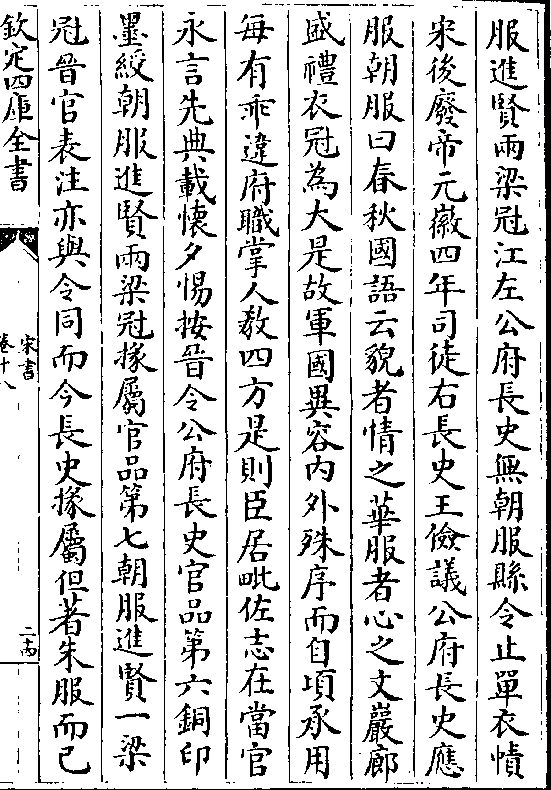 服進賢兩梁冠江左公府長史無朝服縣令止單衣幘
宋後廢帝元徽四年司徒右長史王儉議公府長史應
服朝服曰春秋國語云貌者情之華服者心之文巖廊
盛禮衣冠為大是故軍國異容内外殊序而自頃承用
每有乖違府職掌人教四方是則臣居毗佐志在當官
永言先典載懐夕惕按晉令公府長史官品第六銅印
墨綬朝服進賢兩梁冠掾屬官品第七朝服進賢一梁
冠晉官表注亦與令同而今長史掾屬但著朱服而已
欽定四庫全書
宋書
卷十八
二十四